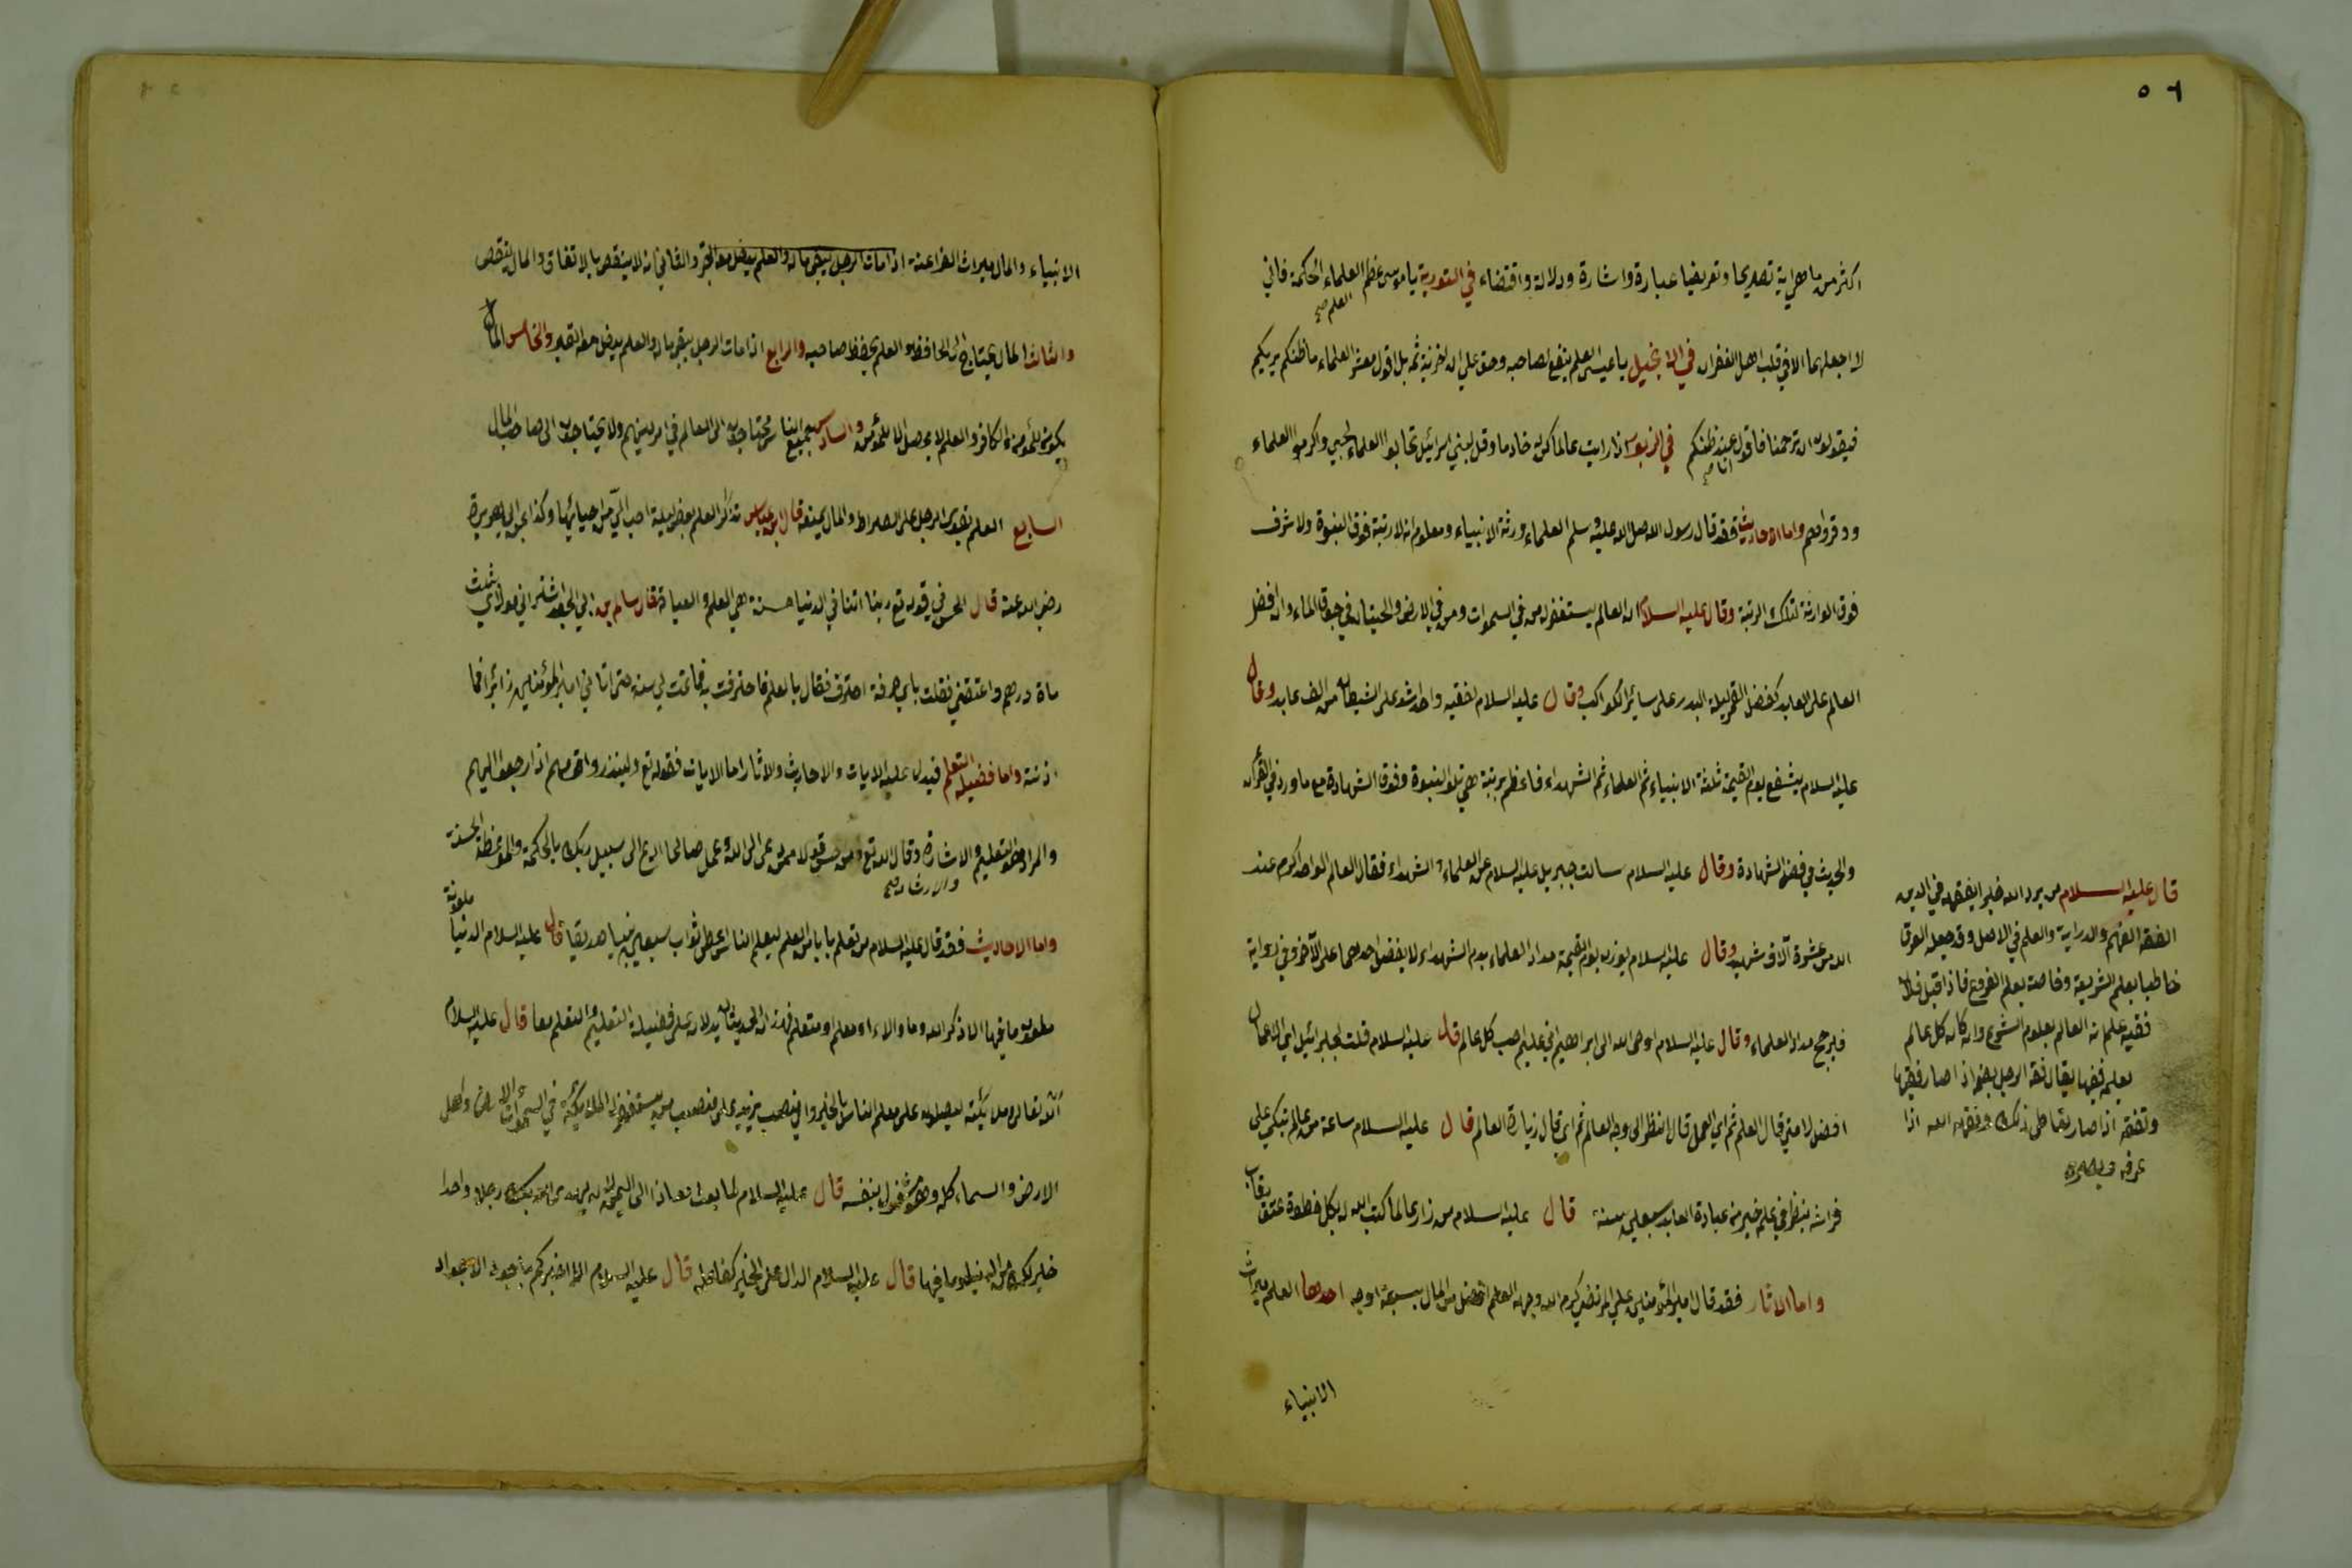 ٥٦
اكثر من ماهى اية تصريحا وتعريضا عبارة واشارة ودلالة واقتضاء في التورية يا موسى عظم العلماء الحكمة فاني
العلم صح
لا اجعلهما الا في قلب اهل الغفران في الانجيل يا عيسى العلم ينفع لصاحبه وحق على ان اخزيته ثم بل اقول معشر العلماء ما ظنكم بربكم
فيقولون ان ترحمنا فاقول عند ظنكم في الزبور اذا رايت عالما كن خادما وقل لبني اسرائيل تحابوا العلماء لحبي واكرموا العلماء
انا صح
ووقروهم واما الاحاديث فقد قال رسول الله صلى الله عليه وسلم العلماء ورثة الانبياء ومعلوم انه لا رتبة فوق النبوة ولا شرف
فوق الوارثة لتلك الرتبة وقال عليه السلام ان العالم يستغفر له من في السموات ومن في الارض والحيتان في جوف الماء وان فضل
العالم على العابد كفضل القمر ليلة البدر على سائر الكواكب وقال عليه السلام لفقيه واحد اشد على الشيطان من الف عابد وقال
عليه السلام يشفع يوم القيمة ثلثة الانبياء ثم العلماء ثم الشهداء فاعظم برتبة هي تلو النبوة وفوق الشهادة مع ما ورد في القرآن
والحديث في فضل الشهادة وقال عليه السلام سالت جبريل عليه السلام عن العلماء والشهداء فقال العالم الواحد اكرم عند
الله من عشرة آلاف شهيد وقال عليه السلام يوزن يوم القيمة مداد العلماء بدم الشهداء لا يفضل احدهما على الآخر وفي رواية
فيرجح مداد العلماء وقال عليه السلام اوحى الله الى ابراهيم اني عليم احب كل عالم قال عليه السلام قلت لجبرائيل اي الاعمال
افضل لامتي قال العلم ثم اي العمل قال انظر الى وجه العالم ثم اي قال زيارة العالم قال عليه السلام ساعة من عالم يتكي على
فراشه ينظر في علمه خير من عبادة العابد سبعين سنة قال عليه السلام من زار عالما كتب الله له بكل خطوة عتق رقاب
واما الاثار فقد قال امير المؤمنين علي المرتضى كرم الله وجهه العلم افضل من المال بسبعة اوجه احدها العلم ميراث
الانبياء
قال عليه السلام من يرد الله خيرا يفقهه في الدين
الفقه الفهم والدراية والعلم في الاصل وقد جعله العرف
خاطبا بعلم الشريعة وخاصة بعلم الفروع فاذا قيل فلان
فقيه علم انه العالم بعلوم الشرع وان كان كل عالم
بعلم فقيها يقال فقه الرجل بضم اذا صار فقيها
وتفقه اذا صار تعاطى ذلك وفقهه الله اذا
عرفه وبصره
الانبياء والمال ميراث الفراعنة اذا مات الرجل يبقى ماله والعلم يدخل معه القبر والثاني انه لا ينقص بالانفاق والمال ينقص
والثالث المال يحتاج الى الحافظ والعلم يحفظ صاحبه والرابع اذا مات الرجل يبقى ماله والعلم يدخل معه القبر والخامس المال
يكون للمؤمن والكافر والعلم لا يحصل الا للمؤمن والسادس جميع الناس محتاجون الى العالم في امر دينهم ولا يحتاجون الى صاحب المال
السابع العلم يقوى الرجل على الصراط والمال يمنعه قال ابن عباس تذاكر العلم بعض ليلة احب الي من احيائها وكذا عن ابي هريرة
رضي الله عنه قال الحسن في قوله تع ربنا اتنا في الدنيا حسنة هي العلم والعبادة قال سالم بن ابي الجعد اشتراني مولاي بثلث
مأة درهم واعتقني فقلت باي حرفة احترف فقال بالعلم فاحترفت به فما تمت لي سنة حتى اتاني امير المؤمنين زائرا فما
اذنته واما فضيلة التعلم فيدل عليه الايات والاحاديث والاثار اما الايات فقوله تع ولينذروا قومهم اذا رجعوا اليهم
والمراد هو التعليم والاشارة وقال الله تع ومن احسن قولا ممن دعى الى الله وعمل صالحا ادع الى سبيل ربك بالحكمة والموعظة الحسنة
والارشاد صح
واما الاحاديث فقد قال عليه السلام من تعلم بابا من العلم ليعلم الناس اعطى ثواب سبعين نبيا صديقا قال عليه السلام الدنيا ملعونة
ملعون ما فيها الا ذكر الله وما والاه او معلم او متعلم فهذان الحديثان يدلان على فضيلة التعليم والتعلم معا قال عليه السلام
الله تعالى وملائكته ليصلون على معلم الناس بالخير
الارض والسماء كله وهو مشغول بنفسه قال عليه السلام لما بعث معاذا الى اليمن لان يهدى الله بك رجلا واحدا
خير لك من الدنيا وما فيها قال عليه السلام الدال على الخير كفاعله قال عليه السلام الا اخبركم باجود الاجواد